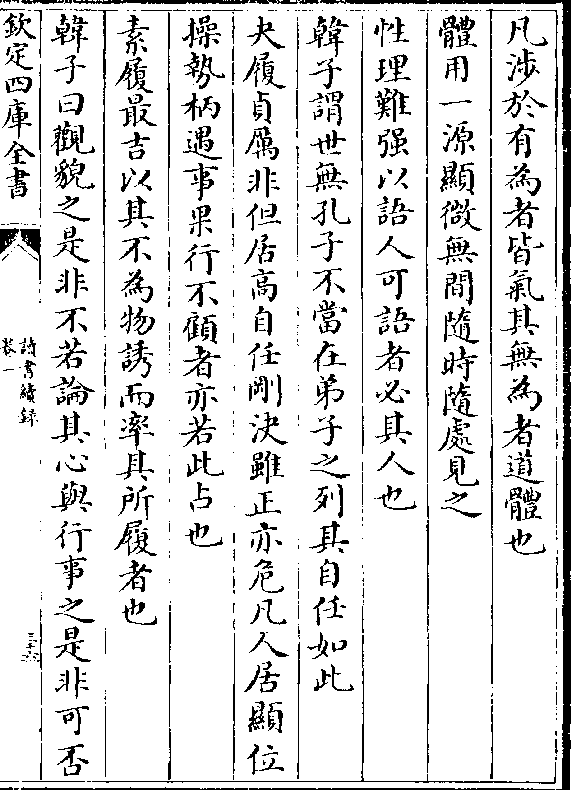 凡涉於有為者皆氣其無為者道體也
體用一源顯微無間隨時隨處見之
性理難强以語人可語者必其人也
韓子謂世無孔子不當在弟子之列其自任如此
夬履貞厲非但居高自任剛決雖正亦危凡人居顯位
操勢柄遇事果行不顧者亦若此占也
素履最吉以其不為物誘而率其所履者也
韓子曰觀貌之是非不若論其心與行事之是非可否
欽定四庫全書
讀書續録
卷一